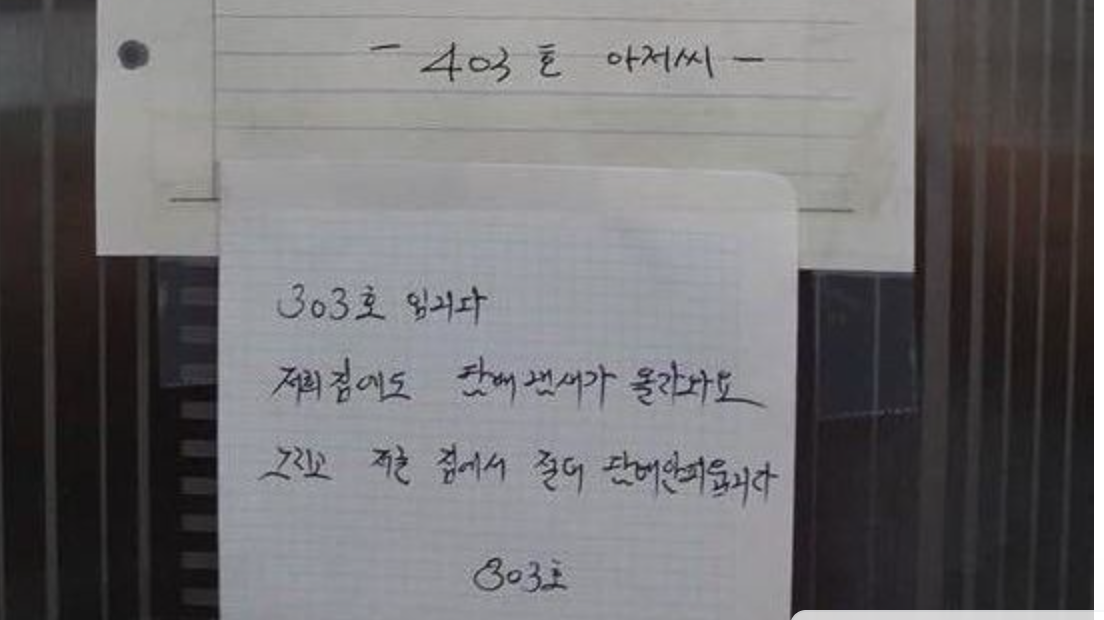 - 403호 아저씨 -
303호 입니다
저희 집에도 담배 냄새가 올라와요
그리고 저는 집에서 절대 담배안피웁니다
303호